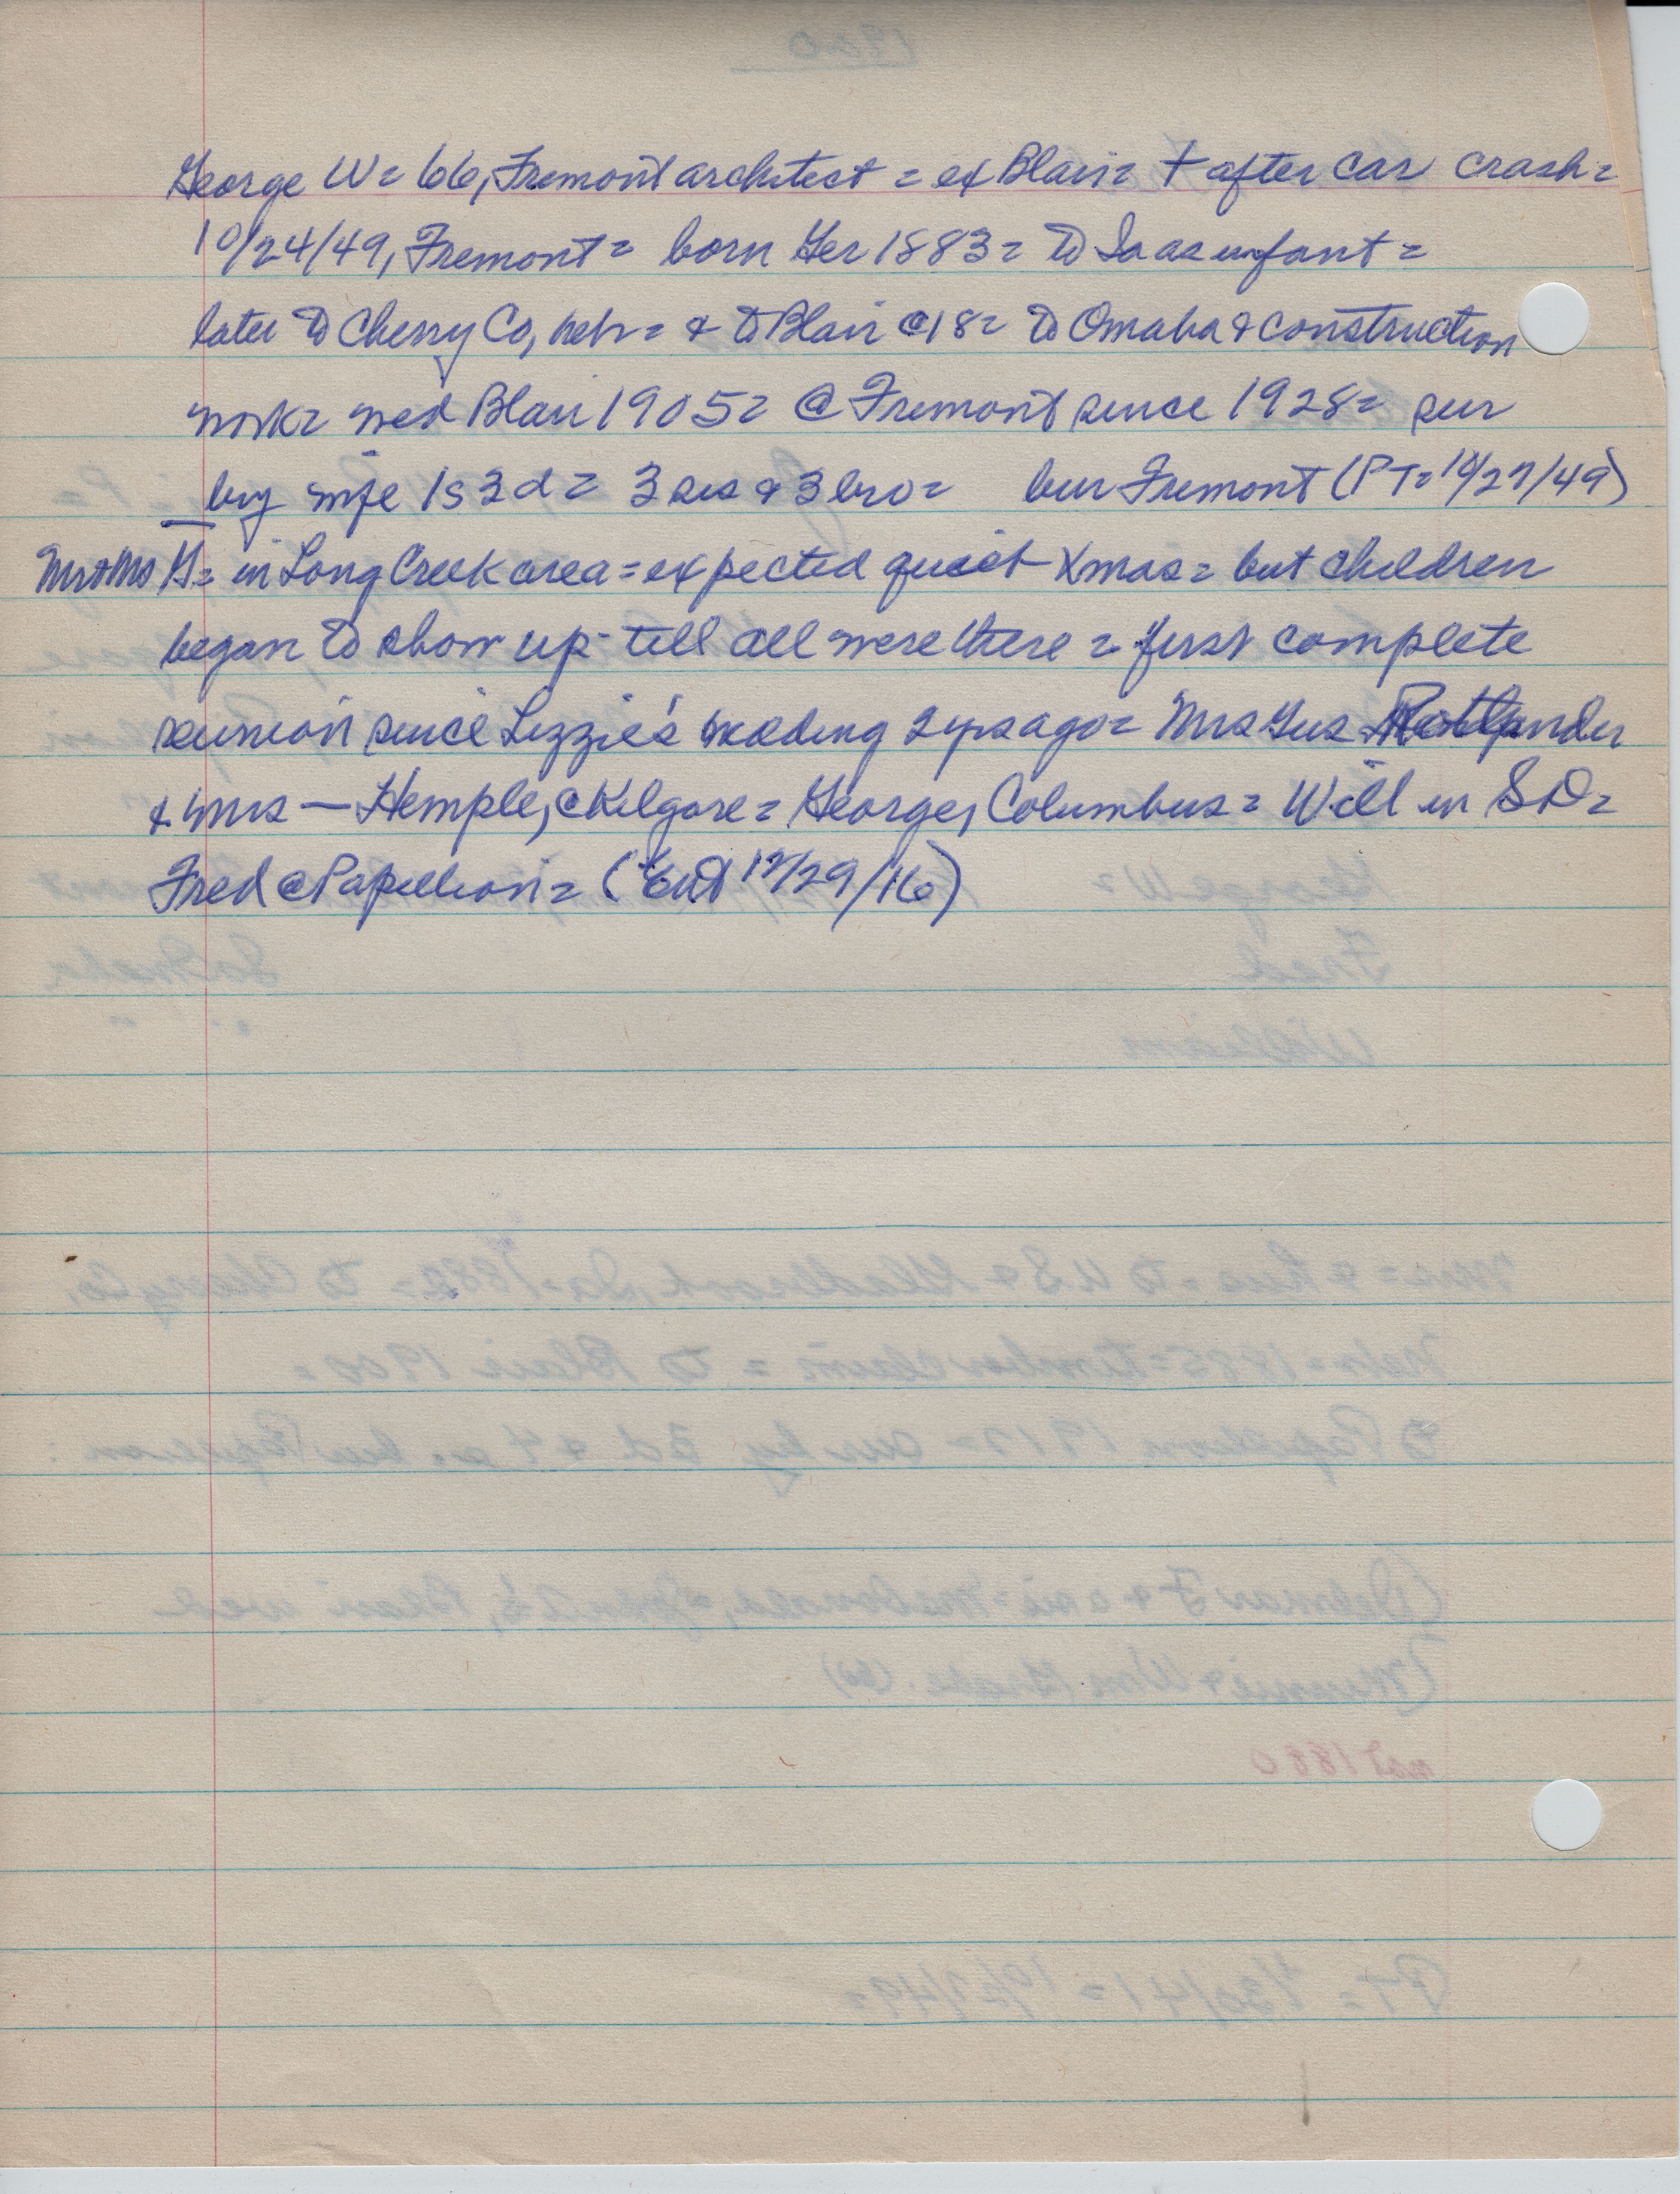 George W= 66, Fremont architect = ex Blair= † after car crash=
10/24/49, Fremont= born Ger 1883= to Ia as infant=
later to Cherry Co, Neb= & to Blair @18= to Omaha & construction
work= wed Blair 1905= @ Fremont since 1928= sur
by wife 1s 3d= 3 sis & 3 bro= bur Fremont (PT= 10/27/49)
Mr+Mrs H= in Long Creek area= expected quiet Xmas= but children
began to show up- till all were there= first complete
reunion since Lizzie's wedding 2 yrs ago= Mrs Gus
& Mrs — Hemple, @ Kilgore= George, Columbus= Will in SD=
Fred @ Papillion= (Ent 12/29/16)